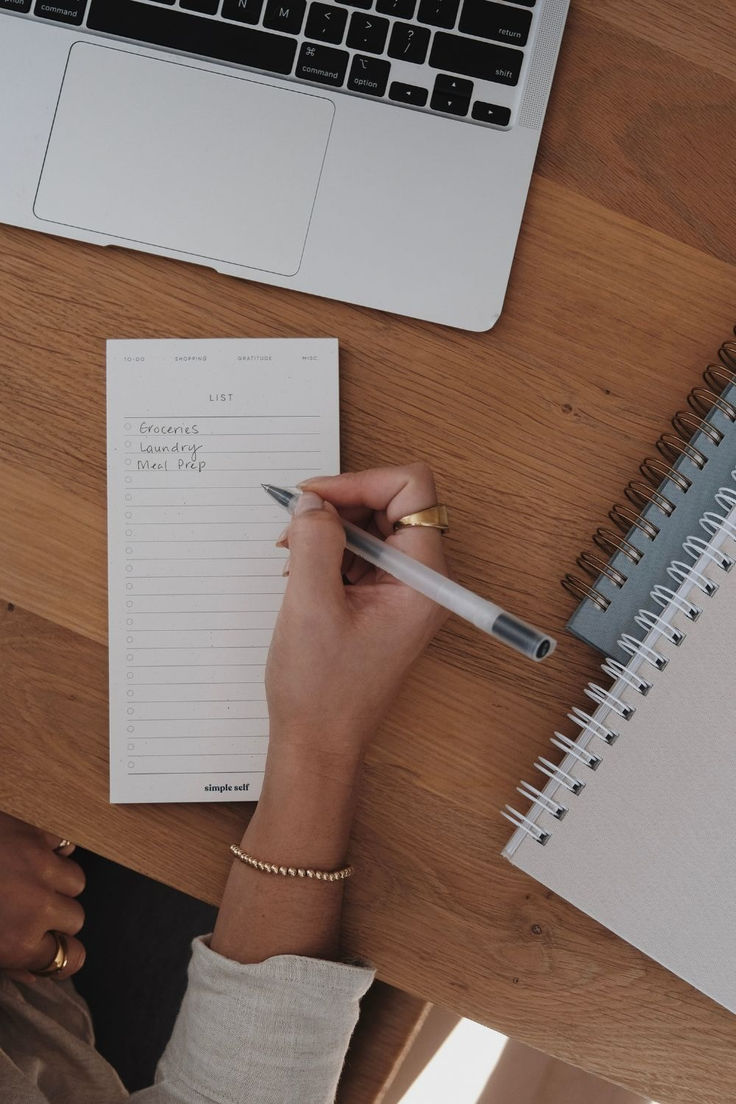 option
command
N
M
<
,
>
.
?
/
return
⌘
command
⌥
option
shift
TO-DO SHOPPING GRATITUDE MISC.
LIST
Groceries
Laundry
Meal Prep
simple self